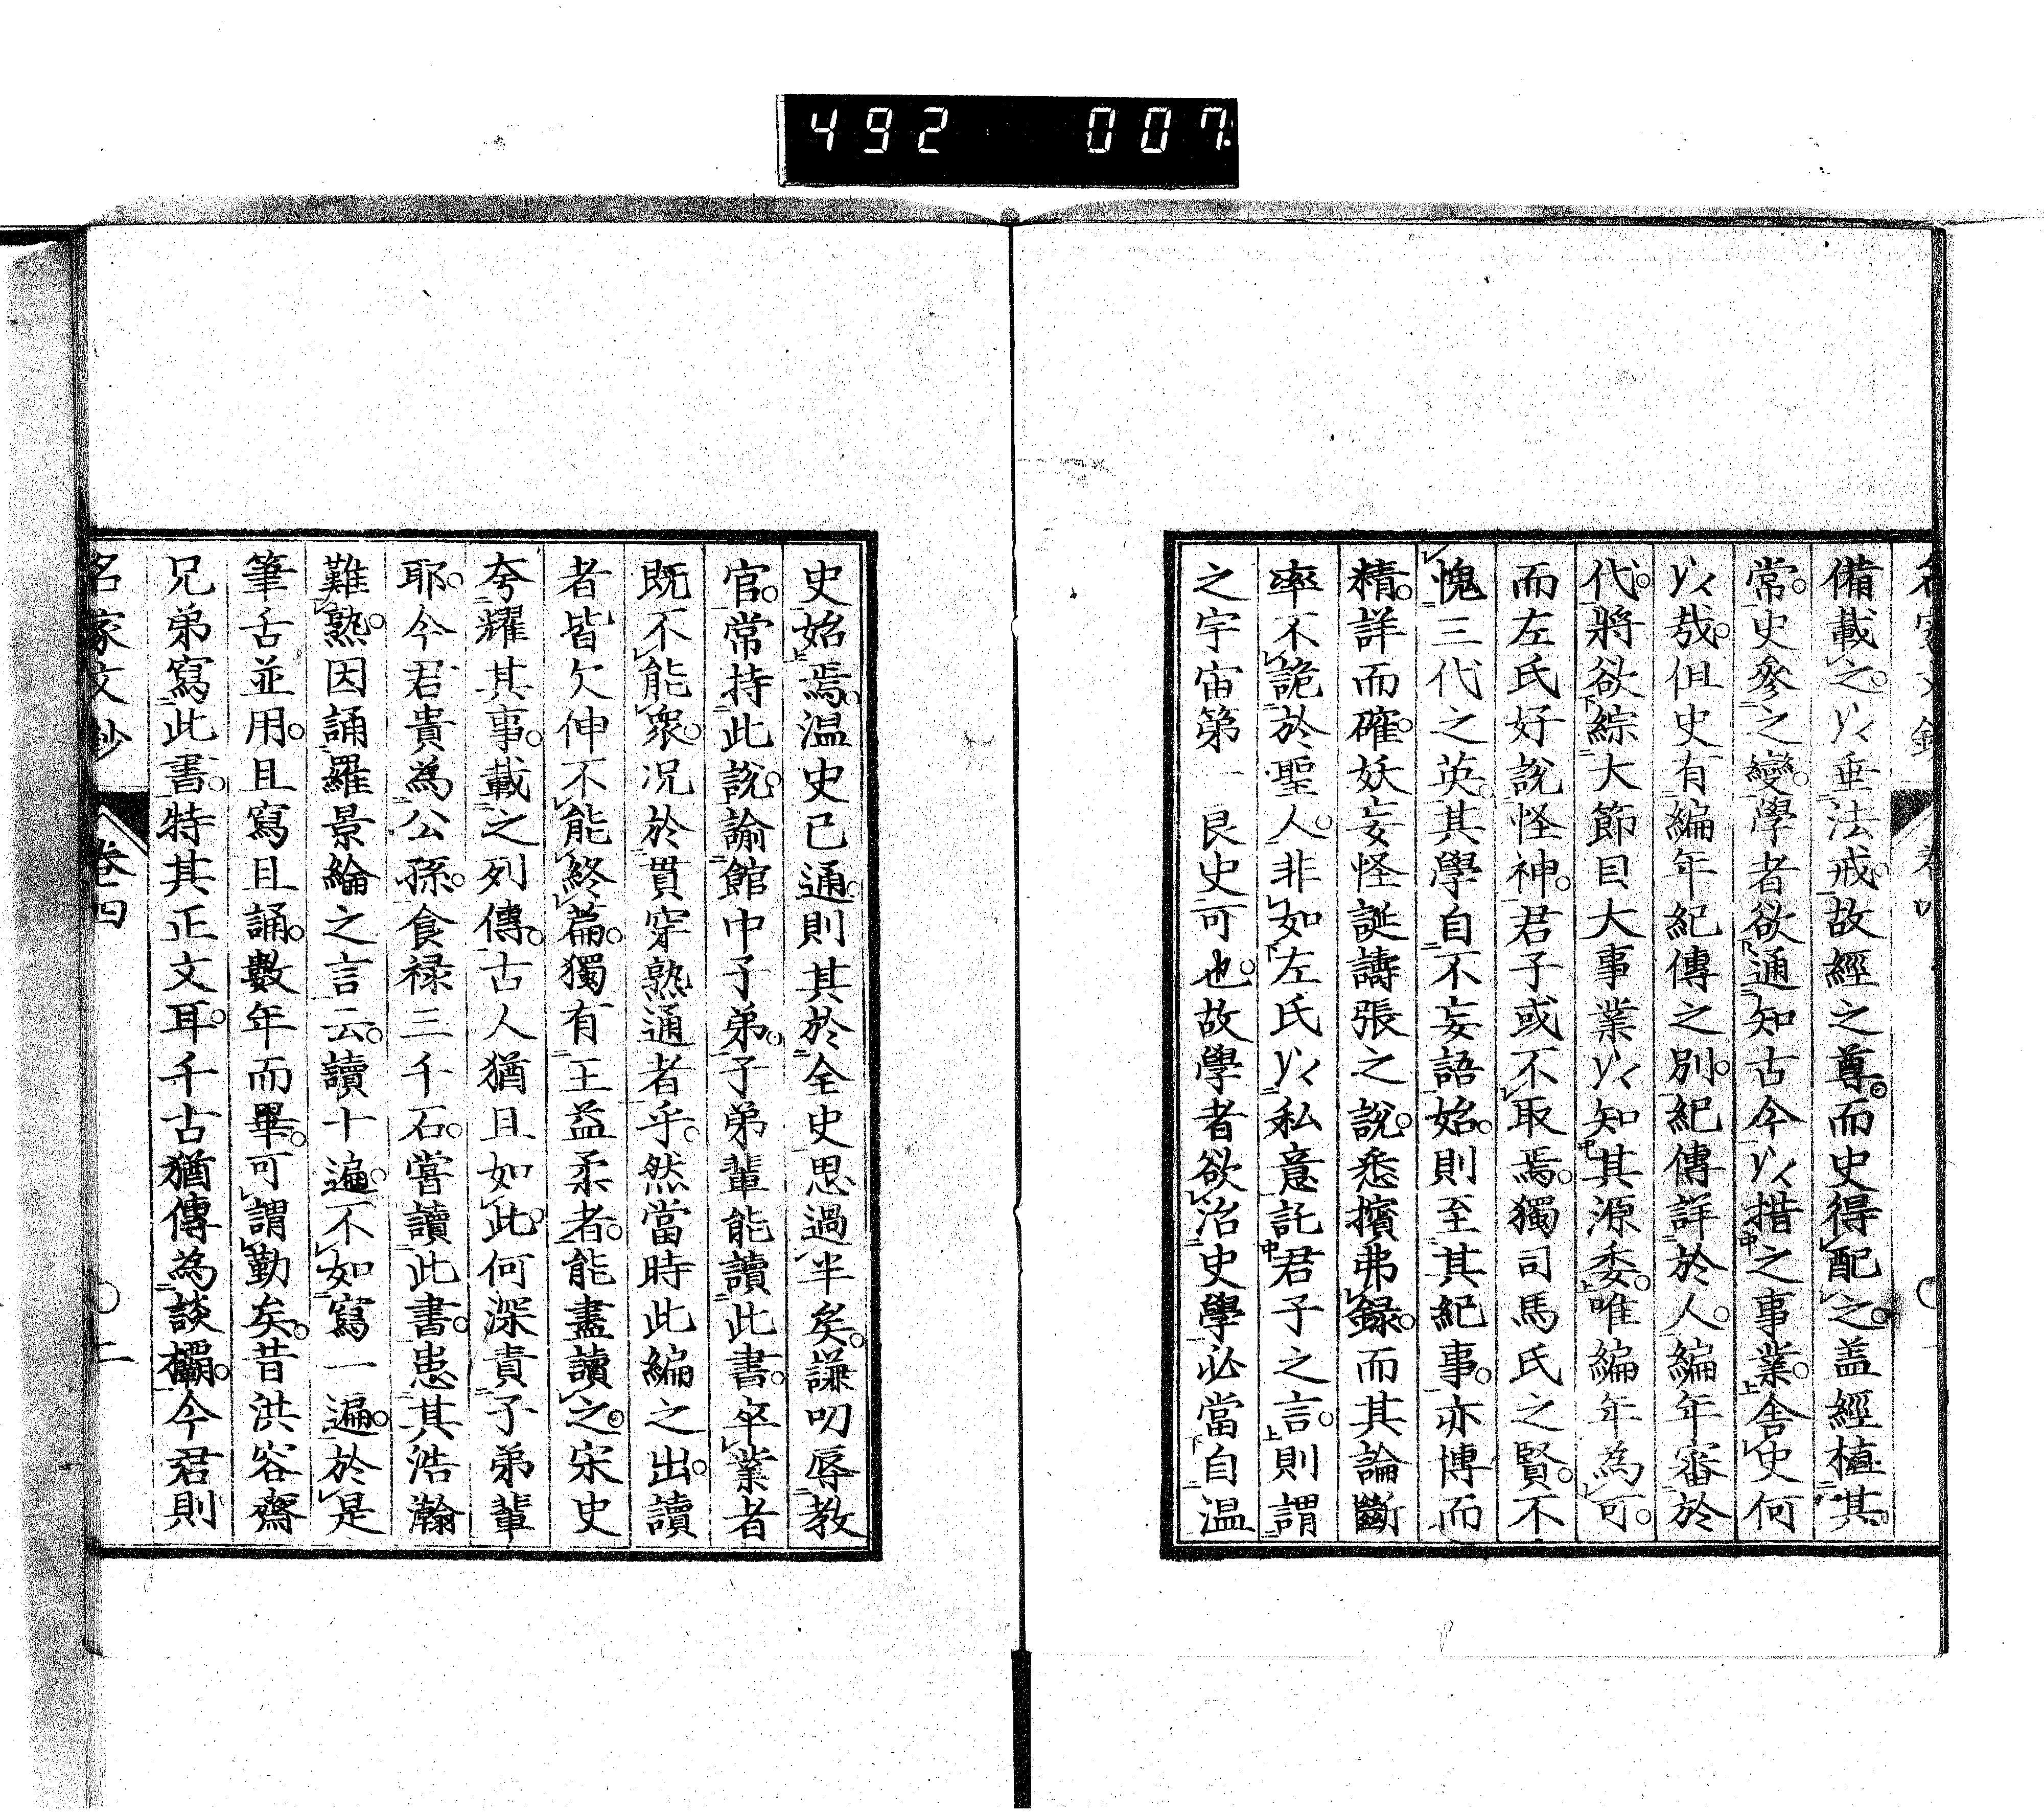 492 007
備載之以垂法戒故經之尊而史得配之盖經植其
常史參之變學者欲通知古今以措之事業舎史何
以哉但史有編年紀傳之別紀傳詳於人編年審於
代將欲綜大節目大事業以知其源委唯編年為可
而左氏好說怪神君子或不取焉獨司馬氏之賢不
愧三代之英其學自不妄語始則至其紀事亦博而
精詳而確妖妄怪誕譸張之說悉擯弗録而其論斷
率不詭於聖人非如左氏以私意託君子之言則謂
之宇宙第一良史可也故學者欲治史學必當自温
史始焉温史已通則其於全史思過半矣謙叨辱教
官常持此說諭館中子弟子弟輩能讀此書卒業者
既不能衆况於貫穿熟通者乎然當時此編之出讀
者皆欠伸不能終篇獨有王益柔者能盡讀之宋史
夸耀其事載之列傳古人猶且如此何深責子弟輩
耶今君貴為公孫食禄三千石嘗讀此書患其浩瀚
難熟因誦羅景綸之言云讀十遍不如寫一遍於是
筆舌並用且寫且誦數年而畢可謂勤矣昔洪容齋
兄弟寫此書特其正文耳千古猶傳為談欛今君則
名家文鈔 卷四 〇二